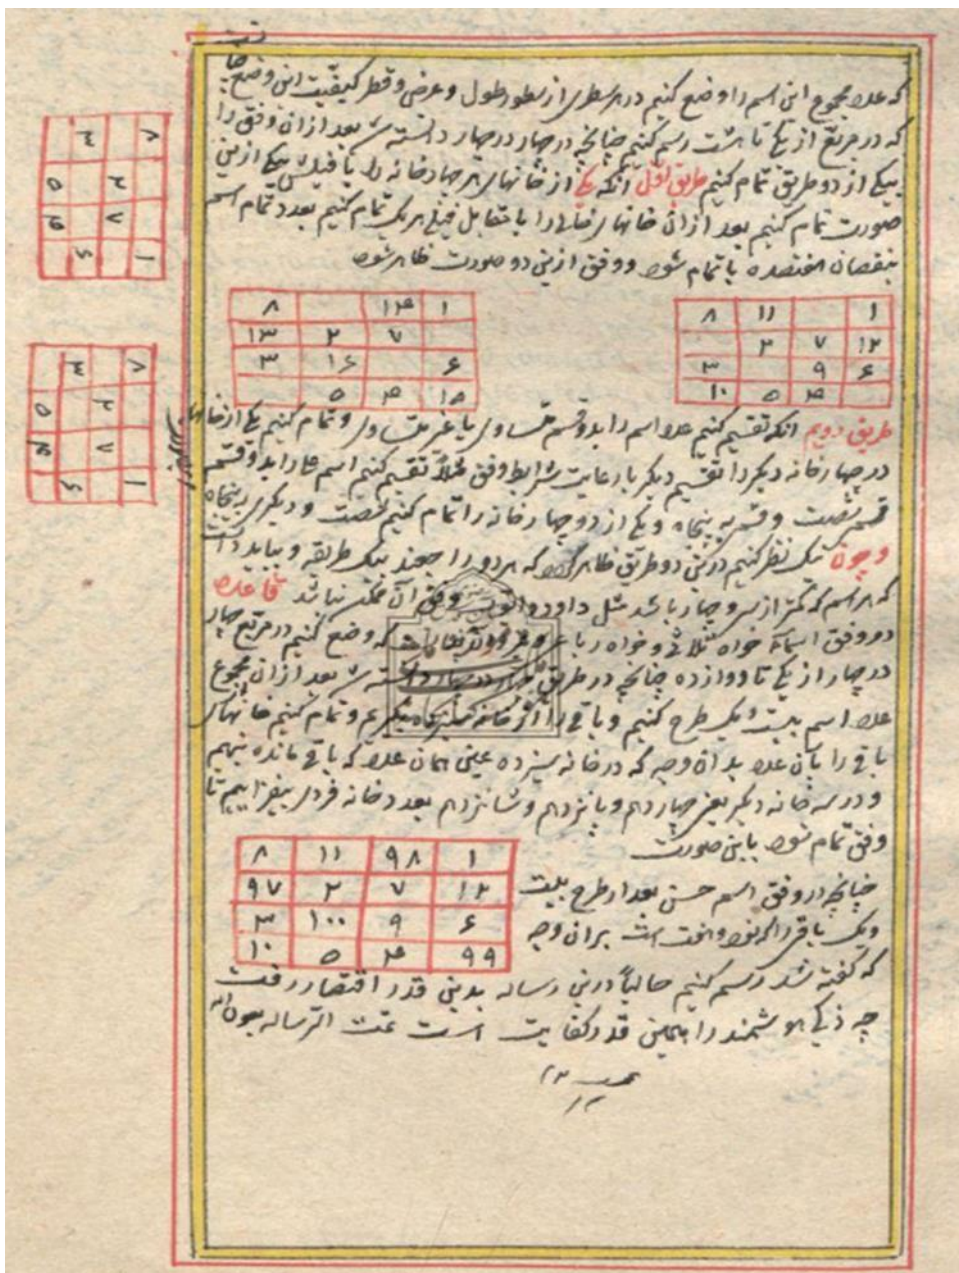 که عدد مجموع این اسم را وضع کنیم در هر سطری از سطور طول و عرض و قطر کیفیت این وضع
که در مربع از یکی تا هشت رسم کنیم چنانچه در چهار در چهار دانسته شد بعد ازان وفق را
بیکی از دو طریق تمام کنیم طریق اول آنکه یکی از خانهای هر چهار خانه را یا قبلش بیکی ازین
صورت تمام کنیم بعد ازان خانهای خالی را با متقابل فیلی هر یک تمام کنیم بعدد تمام اسم
بنقصان یا تمام شود و وفق ازین دو صورت ظاهر شود
۸ ۱۴ ۱
۱۳ ۲ ۷
۳ ۱۶ ۶
۵ ۴ ۱۵
۸ ۱۱ ۱
۲ ۷ ۱۲
۳ ۹ ۶
۱۰ ۵ ۴
طریق دویم آنکه تقسیم کنیم عدد اسم را بدو قسم متساوی یا غیر متساوی و تمام کنیم یکی از خانها
در چهار خانه دیگر را تقسیم دیگر با رعایت شرایط وفق مثلا تقسیم کنیم اسم را بدو قسم
قسمی شصت و قسمی پنجاه و یکی از دو چهار خانه را تمام کنیم بشصت و دیگری به پنجاه
و چون نیک نظر کنیم درین دو طریق ظاهر گردد که هر دو را چند نیک طریقه و بباید دانست
که هر اسم که کمتر از سی و چهار باشد مثل داود و وفق آن ممکن نباشد قاعده
در وفق اسماء خواه ثلاثی و خواه رباعی که وضع کنیم در مربع چهار
در چهار از یکی تا دوازده چنانچه در طریق چهار در چهار دانسته شد بعد ازان مجموع
عدد اسم بیست و یک طرح کنیم و باقی را و تمام کنیم خانهای
باقی را بآن عدد بدان وجه که در خانه سیزده عینی همان عدد که باقی مانده بنهیم
و در سه خانه دیگر یعنی چهاردهم و پانزدهم و شانزدهم بعدد خانه فردی بیفزاییم تا
وفق تمام شود باین صورت
۸ ۱۱ ۹۸ ۱
۹۷ ۲ ۷ ۱۲
۳ ۱۰۰ ۹ ۶
۱۰ ۵ ۴ ۹۹
چنانچه در وفق اسم حسن بعد از طرح بیست
و یک باقی را که نود و هفت است بران وجه
که گفته شد رسم کنیم حالیاً درین رساله بدین قدر اقتصار رفت
چه ذیکی هوشمند را همین قدر کفایت است تمت الرساله بعون اله
۸ ۳
۲ ۵
۷ ۴
۱ ۶
۸ ۳
۲ ۵
۷ ۴
۱ ۶